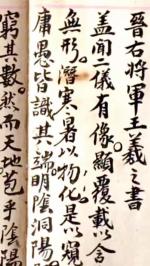 晉右將軍王羲之書
盖聞二儀有像顯覆載以含
無形潛寒暑以物化是以窺
庸愚皆識其端明陰洞陽
窮其數然而天地苞乎陰陽